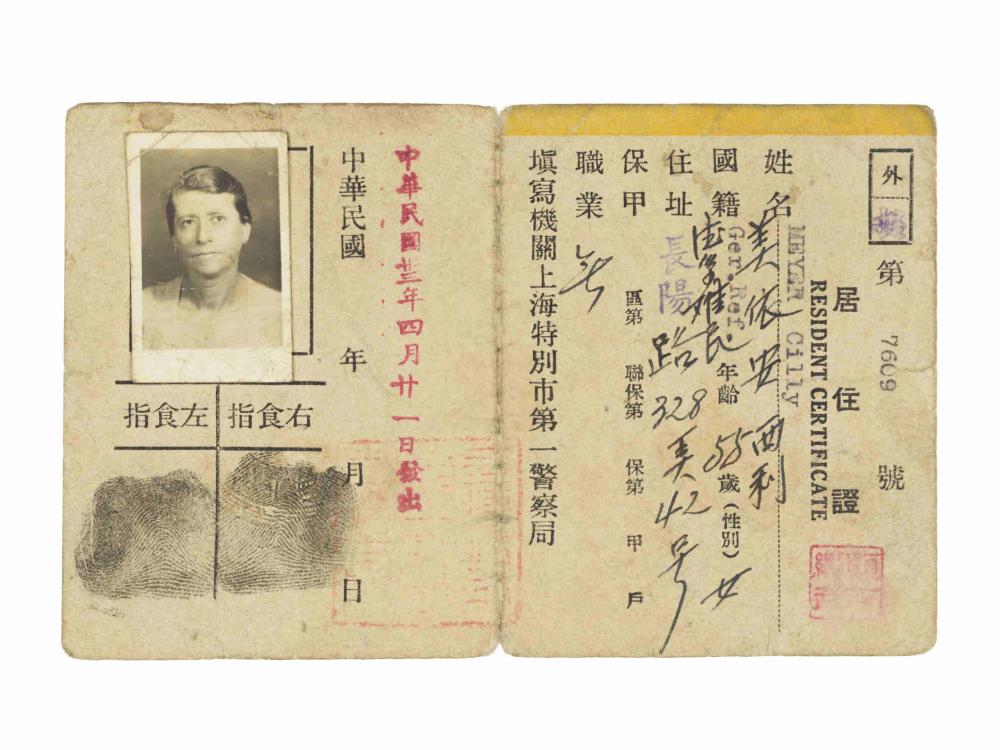 外
第 7609 號
居住證
RESIDENT CERTIFICATE
MEYER Cilly
姓名 美依安西利
國籍 德國難民 年齡 55 歲(性別)女
Ger.Ref.
住址 長陽路328弄42号
保甲 區第 聯保第 保第 甲 戶
職業 无
塡寫機關上海特別市第一警察局
中華民國卅三年四月廿一日發出
中華民國 年 月 日
右食指
左食指